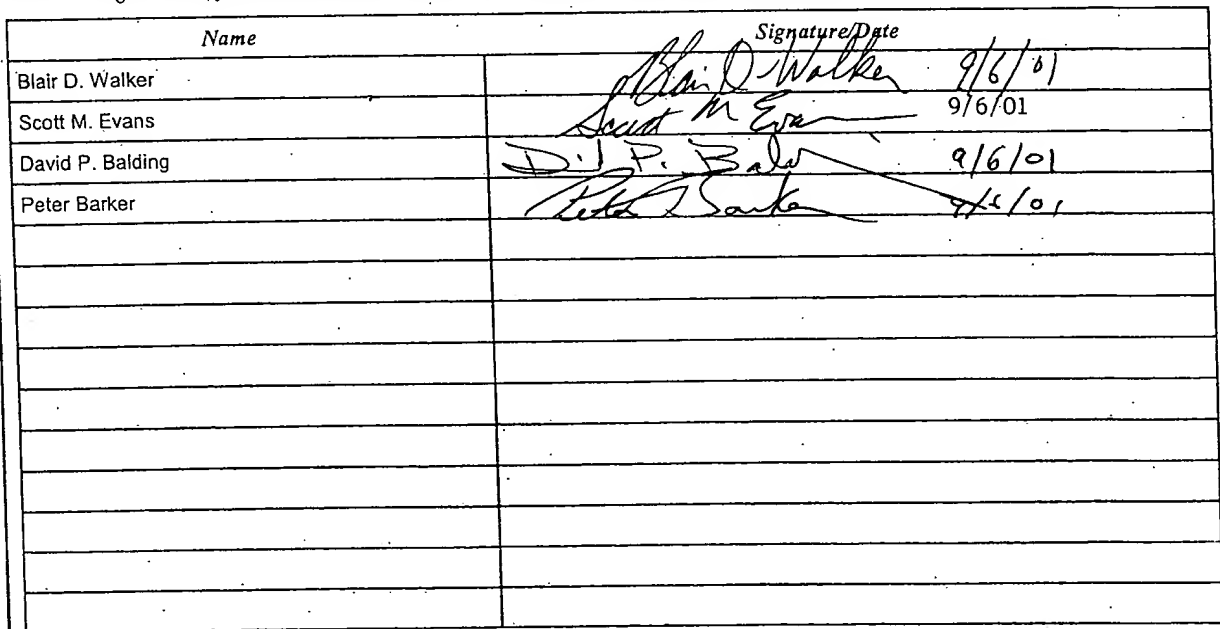 Name Signature/Date
Blair D. Walker Blair D. Walker 9/6/01
Scott M. Evans Scott M Evans 9/6/01
David P. Balding D P. Bald 9/6/01
Peter Barker Peter Barker 9/6/01